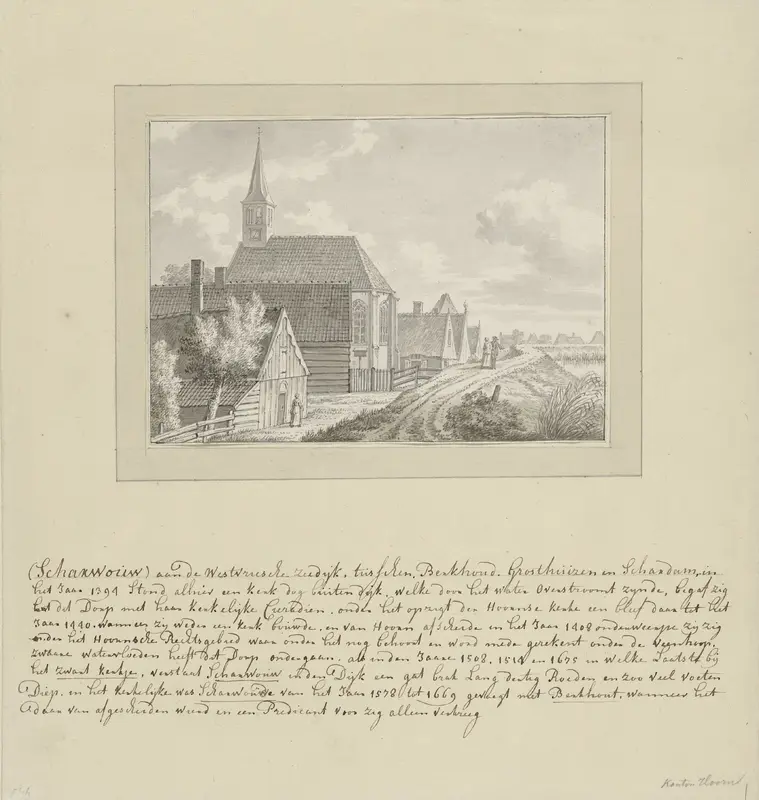 (Scharwouw) aan de Westvriesche Zeedijk, tusschen, Berkhoud, Grosthuizen en Schardam, in
het Jaar 1394 Stond alhier een kerk dog buiten dyk, welke door het water Overstroomt zynde, begaf zig
het dorp met haar kerkelyke Cieradien, onder het opzigt der Hoornse kerke een bleef daar tot het
Jaar 1440. wanneer zy weder een kerk bouwde, en van Hoorn afscheide in het Jaar 1408 onderwierpse zy zig
onder het Hoornsche Rechtsgebied waar onder het nog behoort en word mede gerekent onder de Veenhoop,
zwaare watervloeden heeft dit Dorp ondergaan, als in den Jaare 1508, 1514 en 1675 in welke Laatste by
het zwart kerkje, verstaat Scharwouw in den Dijk een gat brak Lang dertig Roeden en zoo veel voeten
Diep. in het kerkelyke was Scharwoude van het Jaar 1578 tot 1669 gevoegt met Berkhout, wanneer het
daar van afgescheiden wierd en een Predicant voor zig alleen verkreeg
Kanton Hoorn